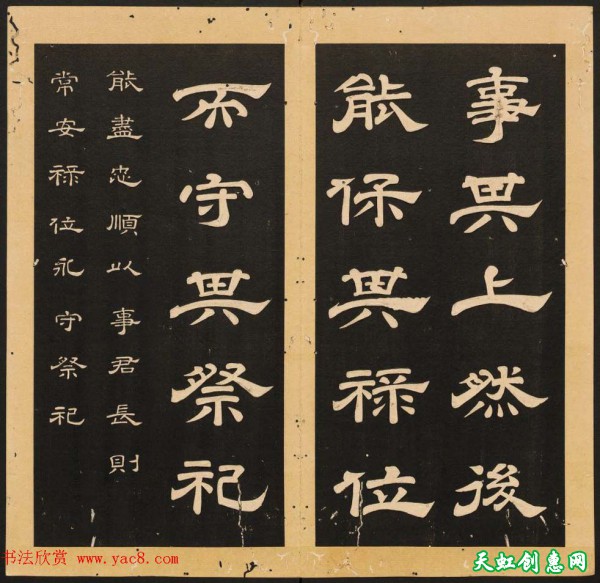 事其上然後
能保其祿位
而守其祭祀
能盡忠順以事君長則
常安祿位永守祭祀
书法欣赏 www.yac8.com
天虹创惠网